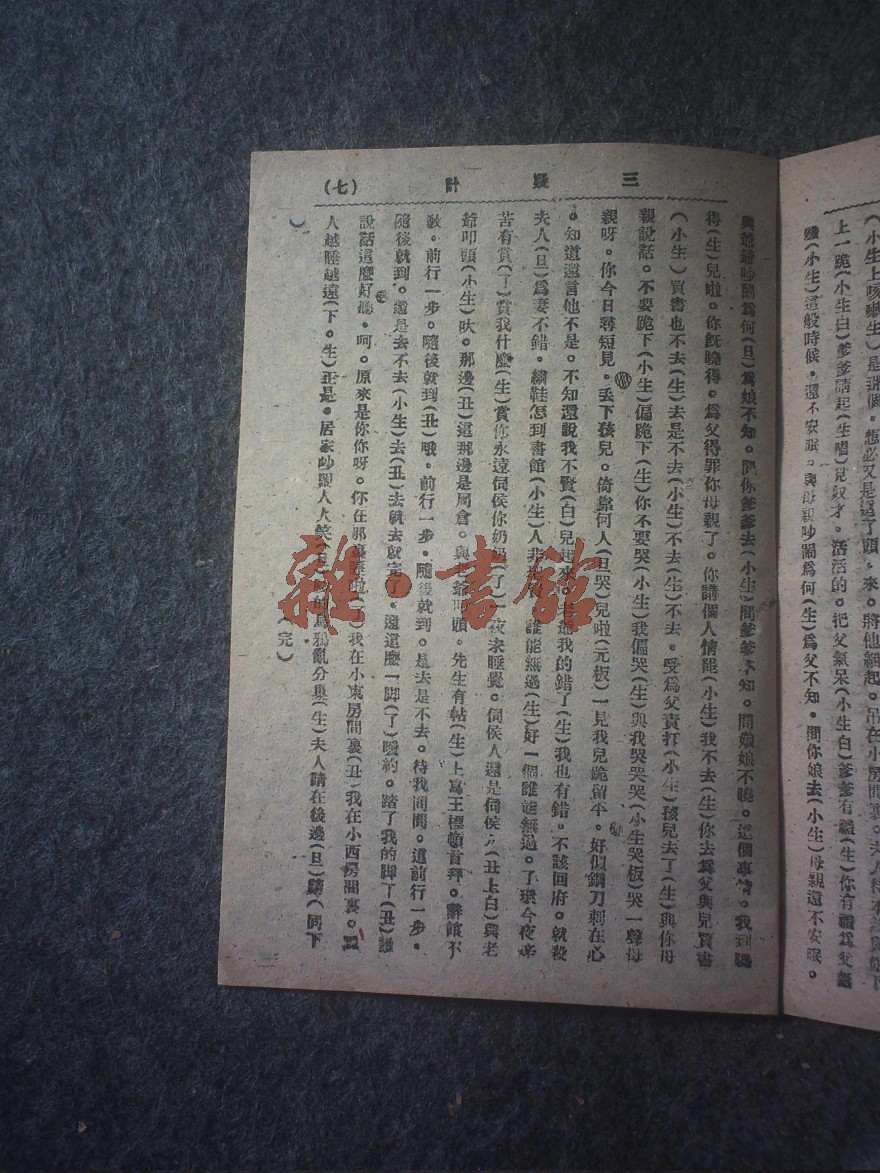 (小生上咳嗽生)是誰個。想必又是這丫頭。來。將他綑起。吊在小房間裏。夫人待本
上一跪(小生白)爹爹請起(生唱)見奴才。活活的。把父氣呆(小生白)爹爹有禮(生)你有禮爲父無
禮(小生)這般時候。還不安眠。與母親吵鬧爲何(生)爲父不知。問你娘去(小生)母親這不安眠。
三疑計 (七)
與爹爹吵鬧爲何(旦)爲娘不知。問你爹爹去(小生)問爹爹不知。問娘娘不曉。這個事情。我到曉
得(生)兒啦。你旣曉得。爲父得罪你母親了。你講個人情罷(小生)我不去(生)你去爲父與兒買書
(小生)買書也不去(生)去是不去(小生)不去(生)不去。受爲父責打(小生)孩兒去了(生)與你母
親說話。不要跪下(小生)偏跪下(生)你不要哭(小生)我偏哭(生)與我哭哭哭(小生哭板)哭一聲母
親呀。你今日尋短見。丢下孩兒。倚靠何人(旦哭)兒啦(元板)一見我兒跪留平。好似鋼刀刺在心
。知道還言他不是。不知還說我不賢(白)兒起來。老爺我的錯了(生)我也有錯。不該回府。就殺
夫人(旦)爲妻不錯。繡鞋怎到書館(小生)人非 誰能無過(生)好一個誰能無過。了環今夜辛
苦有賞(了)賞我什麽(生)賞你永遠伺侯你奶奶(了)一夜未睡覺。伺侯人還是伺侯人(丑上白)與老
爺叩頭(小生)吠。那邊(丑)這那邊是周倉。與老爺叩頭。先生有帖(生)上寫王標頓首拜。辭館不
敎。前行一步。隨後就到(丑)哦。前行一步。隨後就到。是去是不去。待我問問。這前行一步。
隨後就到。還是去不去(小生)去(丑)去就去就完了。還這麽一脚(了)噯約。踏了我的脚了(丑)誰
說話這麽好聽。呵。原來是你你呀。你在那裏睡啦(了)我在小東房間裏(丑)我在小西房間裏。
人越睡越遠(下。生)正是。居家吵鬧人人笑(旦) 的烏鴉亂分集(生)夫人請在後邊(旦)請(同下
)
完)
雜·書館